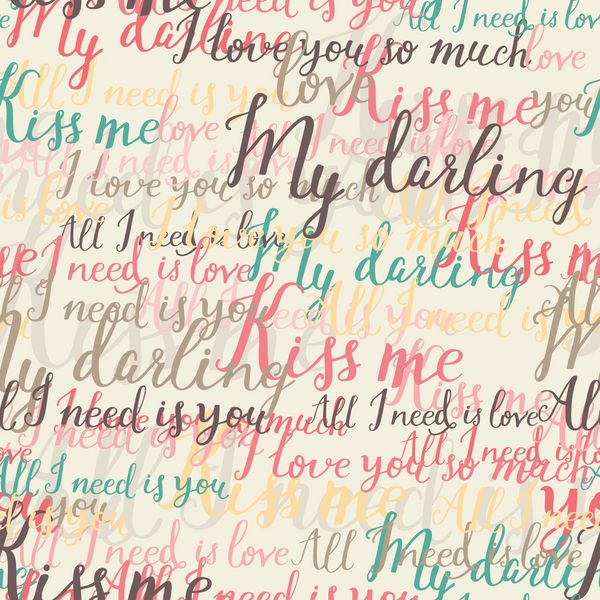 Kiss me
All I need is love
My darling
I love you so much
love
All I need is you
love
Kiss me
you
Kiss me
love
All I need is love
My darling
I love you so much
is love
All I need is love
I love you so much
Kiss me
I need is love
My darling
I need is you
All I need is you
My darling
Kiss me
Kiss me
All I need is you
much
All I need is love
All
I need is you
I love you so much
All I need is love
All I need is you
Kiss me
you
All I need
My darling
All I need is love
All I need is love
Kiss me
All I need is